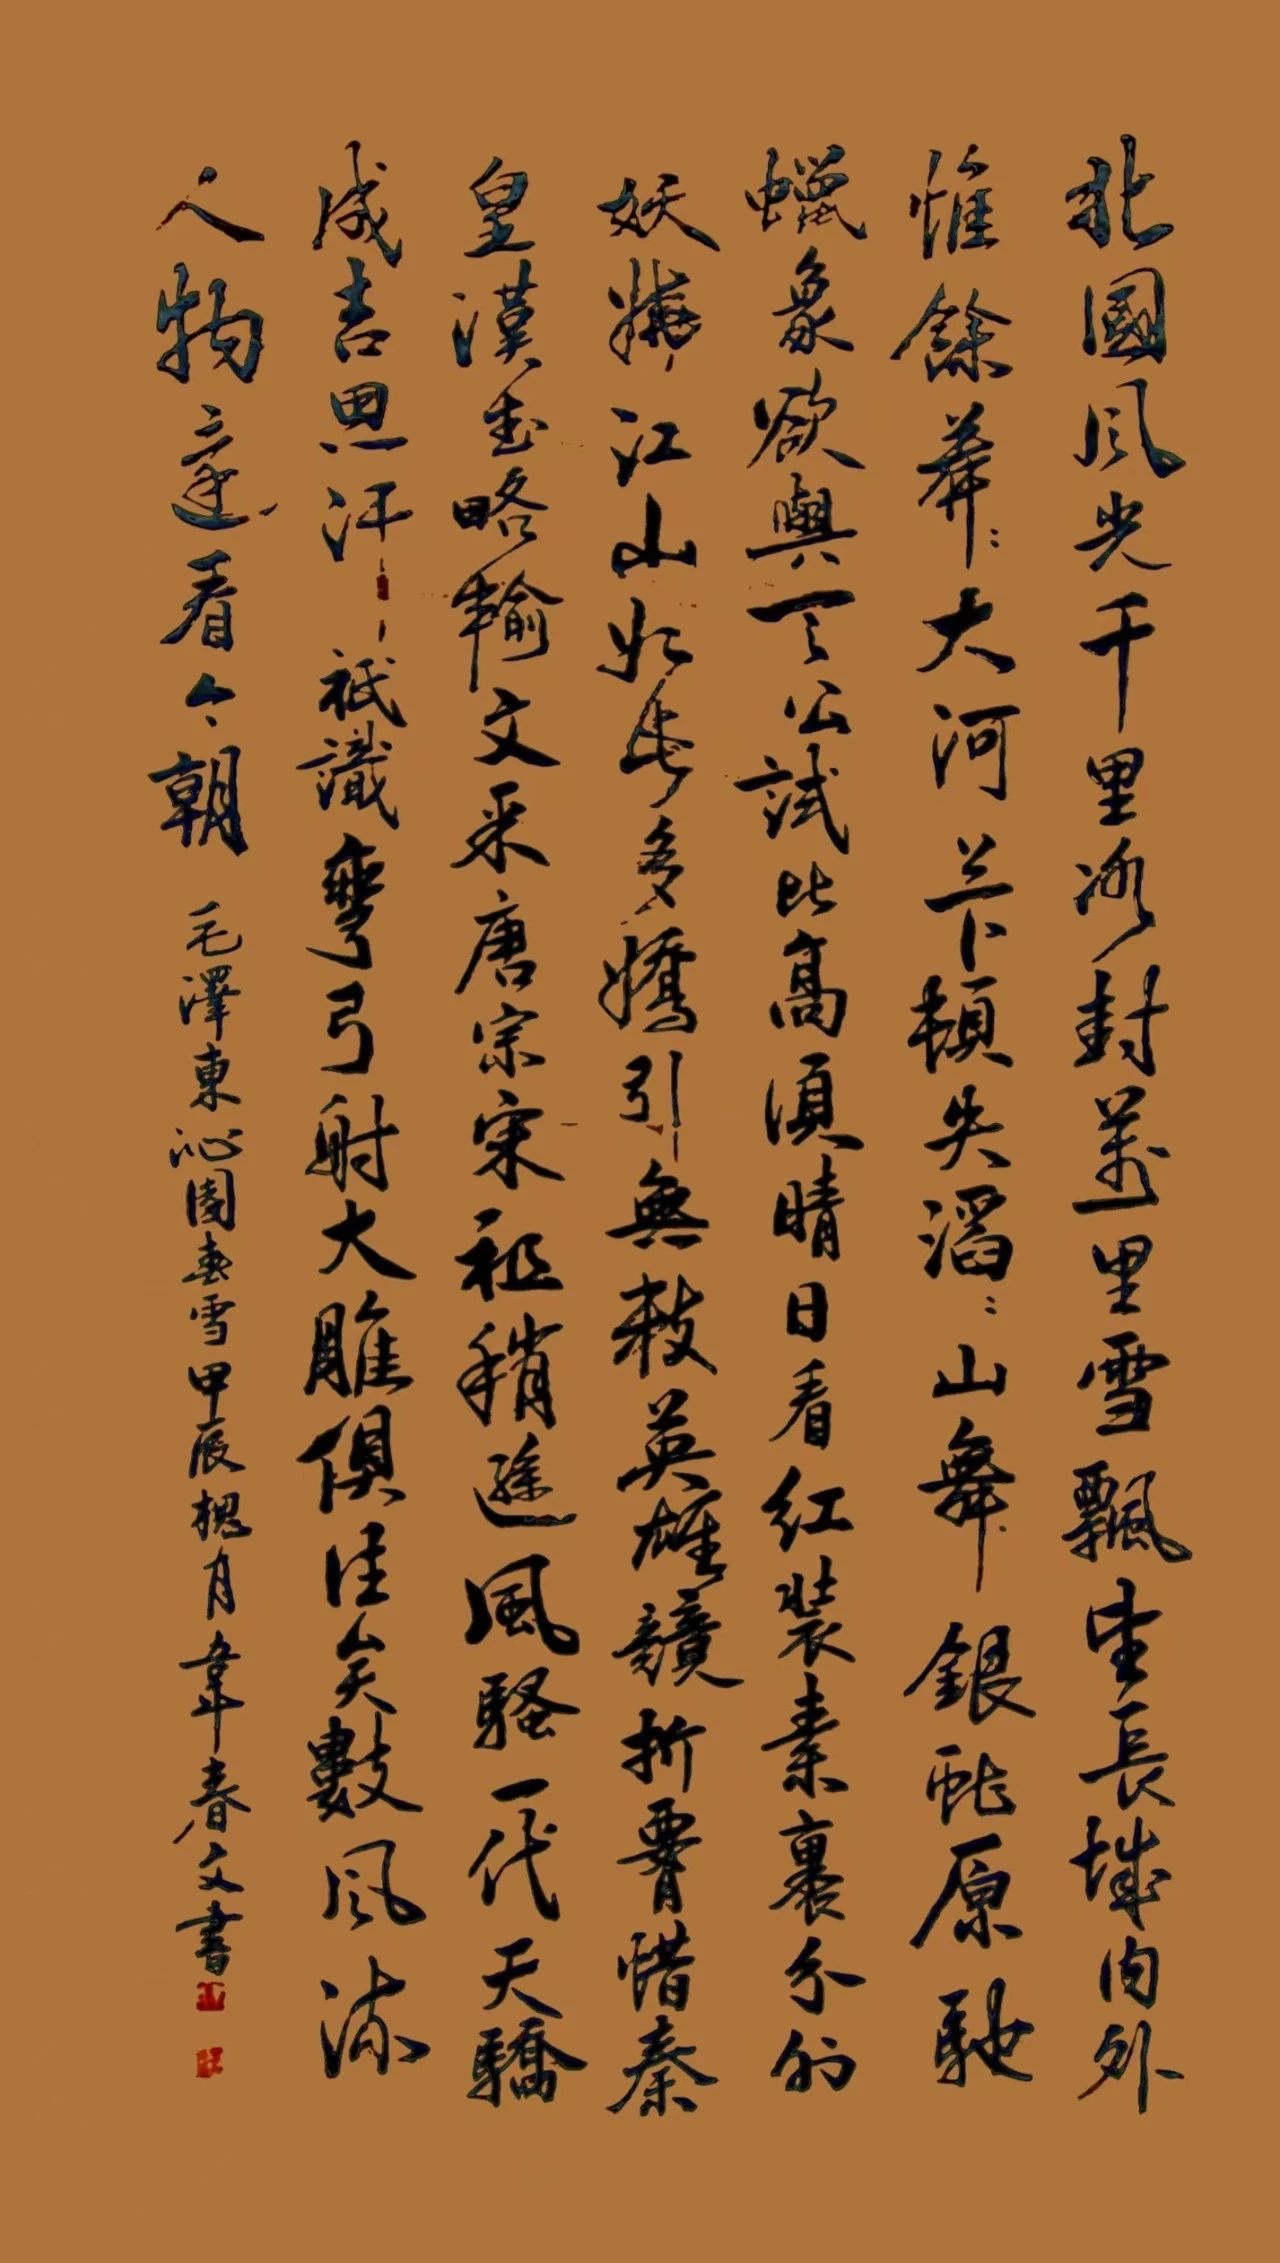 北國風光千里冰封萬里雪飄望長城內外
惟餘莽〻大河上下頓失滔〻山舞銀蛇原馳
蠟象欲與天公試比高須晴日看紅裝素裹分外
妖嬈江山如此多嬌引無數英雄競折腰惜秦
皇漢武略輸文采唐宗宋祖稍遜風騷一代天驕
成吉思汗祇識彎弓射大雕俱往矣數風流
人物還看今朝 毛澤東沁園春雪甲辰槐月韋春文書